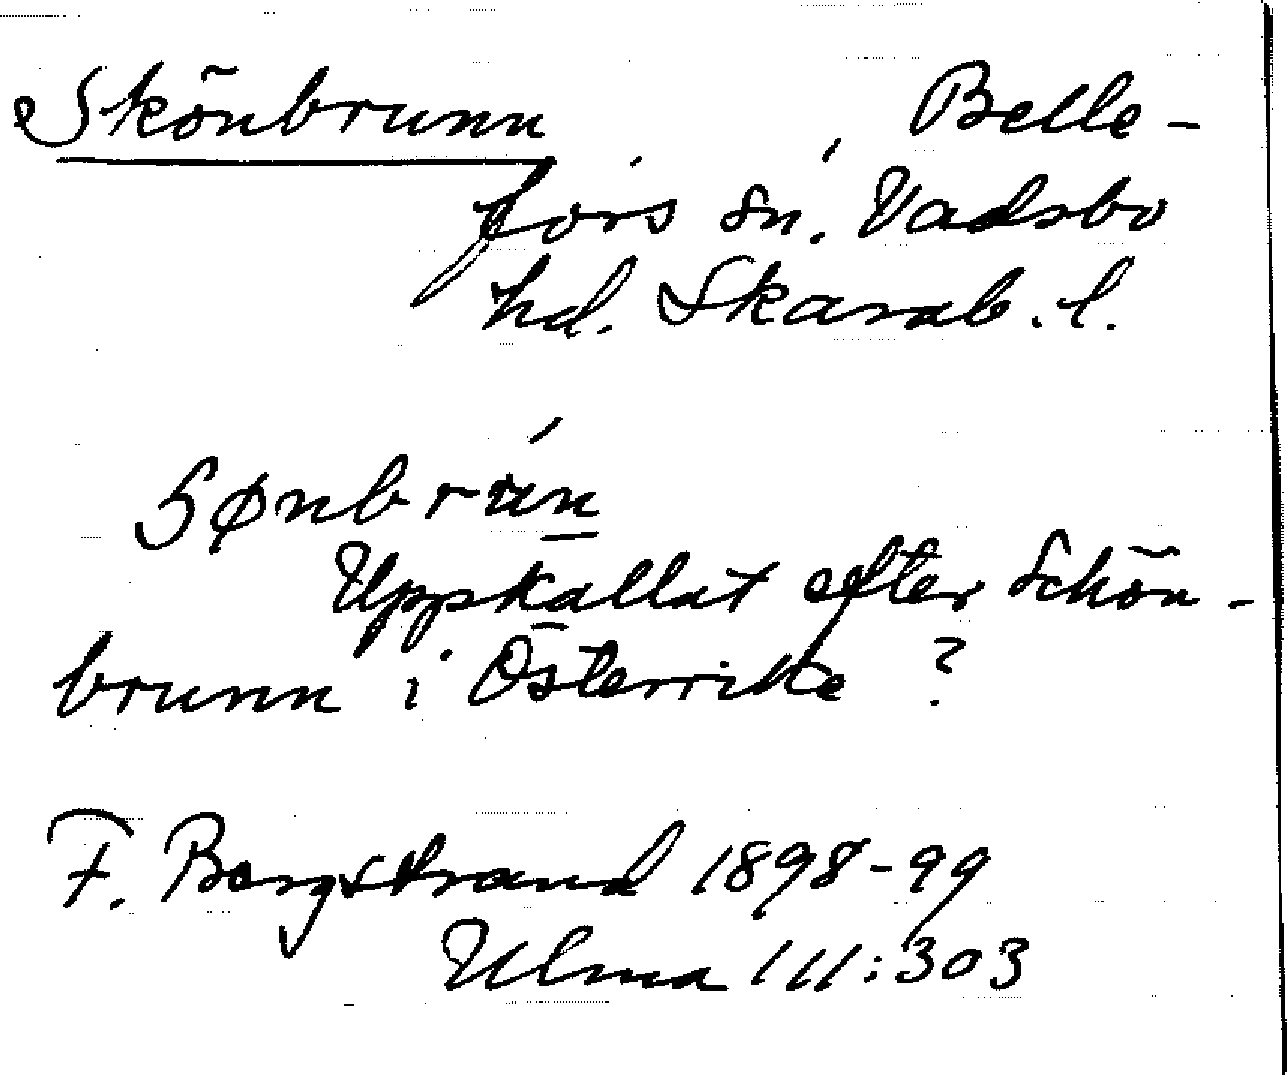 Skönbrunn, Belle-
fors sn. Vadsbo
hd. Skarab. l.
Sønbrún
Uppkallat efter Schön-
brunn i Österrike ?
F. Bergstrand 1898-99
Ulma 111:303